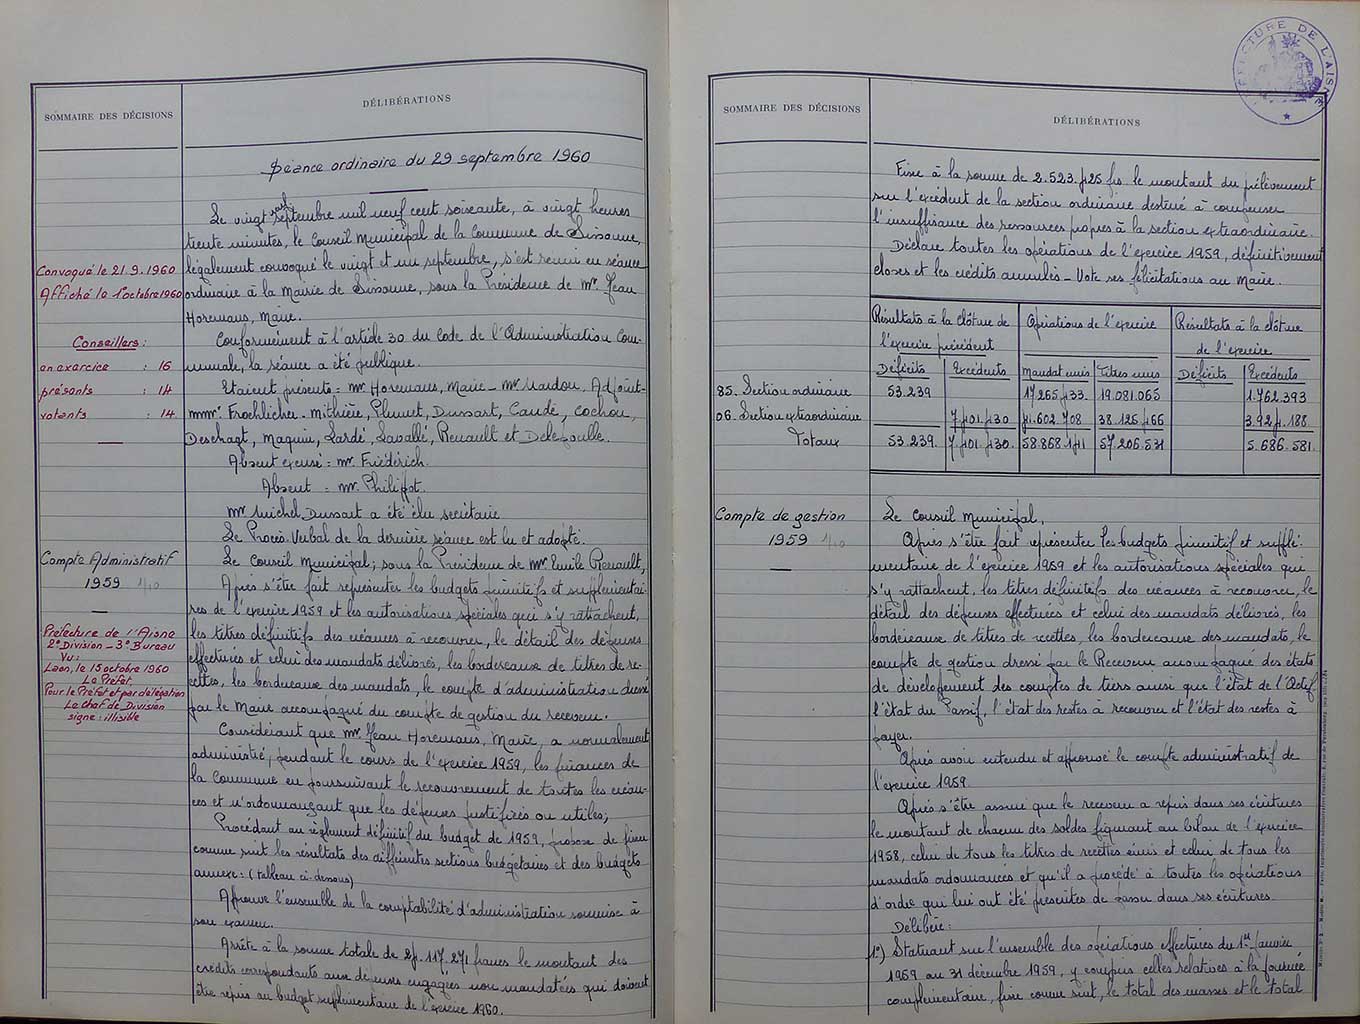 SOMMAIRE DES DÉCISIONS
DÉLIBÉRATIONS
Séance ordinaire du 29 septembre 1960
Le vingt neuf septembre mil neuf cent soixante, à vingt heures
trente minutes, le Conseil Municipal de la Commune de Sissonne,
légalement convoqué le vingt et un septembre, s'est réuni en séance
ordinaire à la Mairie de Sissonne, sous la Présidence de Mr Jean
Horemans, Maire.
Convoqué le 21.9.1960
Affiché le 1er octobre 1960
Conformément à l'article 30 du Code de l'Administration Com-
munale, la séance a été publique.
Conseillers :
en exercice : 16
présents : 14
votants : 14
Etaient présents : Mr Horemans, Maire - Mr Mardou, Adjoint-
MMrs Froehlicher, Mithière, Plumet, Dussart, Caudé, Cochou,
Deschagt, Maquin, Lardé, Lavallé, Renault et Delefoulle.
Absent excusé : Mr. Friédérich.
Absent : Mr. Philipot.
Mr Michel Dussart a été élu secrétaire
Le Procès-Verbal de la dernière séance est lu et adopté.
Compte Administratif
1959 1/10
Le Conseil Municipal, sous la Présidence de Mr Emile Renault,
Après s'être fait représenter les budgets primitifs et supplémentai-
res de l'exercice 1959 et les autorisations spéciales qui s'y rattachent,
les titres définitifs des créances à recouvrer, le détail des dépenses
effectuées et celui des mandats délivrés, les bordereaux de titres de re-
cettes, les bordereaux des mandats, le compte d'administration dressé
par le Maire accompagné du compte de gestion du receveur.
Préfecture de l'Aisne
2e Division - 3e Bureau
Vu :
Laon, le 15 octobre 1960
Le Préfet,
Pour le Préfet et par délégation
Le Chef de Division
signé : illisible
Considérant que Mr Jean Horemans, Maire, a normalement
administré, pendant le cours de l'exercice 1959, les finances de
la Commune en poursuivant le recouvrement de toutes les créan-
ces et n'ordonnançant que les dépenses justifiées ou utiles;
Procédant au règlement définitif du budget de 1959, propose de fixer
comme suit les résultats des différentes sections budgétaires et des budgets
annexe : (tableau ci-dessous)
Approuve l'ensemble de la comptabilité d'administration soumise à
son examen.
Arrête à la somme totale de 24.117.271 francs le montant des
crédits correspondants aux dépenses engagées non mandatées qui doivent
être repris au budget supplémentaire de l'exercice 1960.
PRÉFECTURE DE L'AISNE
SOMMAIRE DES DÉCISIONS
DÉLIBÉRATIONS
Fixe à la somme de 2.523.425 frs le montant du prélèvement
sur l'excédent de la section ordinaire destiné à compenser
l'insuffisance des ressources propres à la section extraordinaire.
Déclare toutes les opérations de l'exercice 1959, définitivement
closes et les crédits annulés - Vote ses félicitations au Maire.
Résultats à la clôture de l'exercice précédent
Opérations de l'exercice
Résultats à la clôture de l'exercice
Déficits Excédents Mandat émis Titres émis Déficits Excédents
85. Section ordinaire 53.239 17.265.433 19.081.065 1.762.393
06. Section extraordinaire 7.401.430 41.602.708 38.125.466 3.924.188
Totaux 53.239. 7.401.430. 58.868.141 57.206.531 5.686.581.
Compte de gestion
1959 1/10
Le Conseil Municipal,
Après s'être fait représenter les budgets primitif et supplé-
mentaire de l'exercice 1959 et les autorisations spéciales qui
s'y rattachent, les titres définitifs des créances à recouvrer, le
détail des dépenses effectuées et celui des mandats délivrés, les
bordereaux de titres de recettes, les bordereaux des mandats, le
compte de gestion dressé par le Receveur accompagné des états
de développement des comptes de tiers ainsi que l'état de l'Actif
l'état du Passif, l'état des restes à recouvrer et l'état des restes à
payer.
Après avoir entendu et approuvé le compte administratif de
l'exercice 1959.
Après s'être assuré que le receveur a repris dans ses écritures
le montant de chacun des soldes figurant au bilan de l'exercice
1958, celui de tous les titres de recettes émis et celui de tous les
mandats ordonnancés et qu'il a procédé à toutes les opérations
d'ordre qui lui ont été prescrites de passer dans ses écritures.
Délibère :
1°) Statuant sur l'ensemble des opérations effectuées du 1er Janvier
1959 au 31 décembre 1959, y compris celles relatives à la journée
complémentaire, fixe comme suit, le total des masses et le total